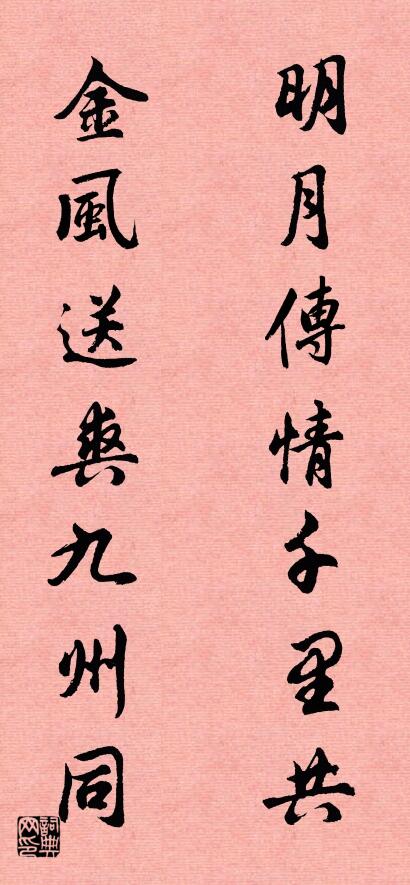 明月傳情千里共
金風送爽九州同
詞典網印